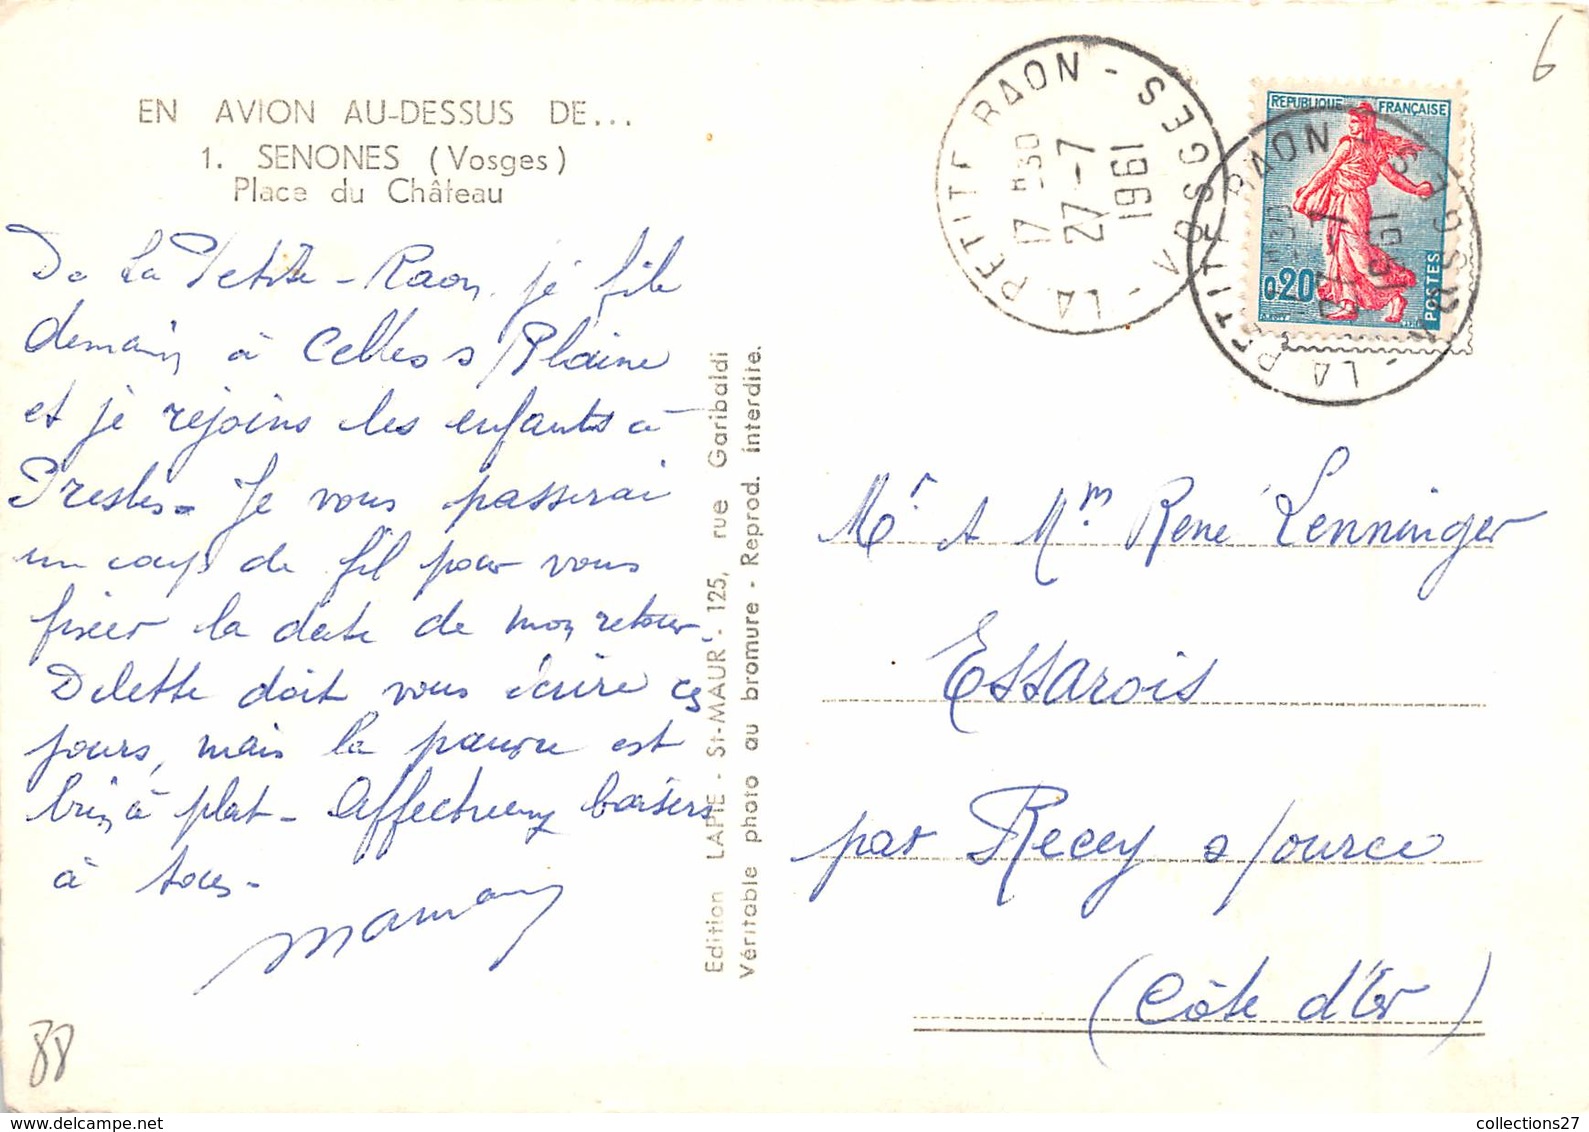 EN AVION AU-DESSUS DE...
1. SENONES (Vosges)
Place du Château
De La Petite-Raon, je file
demain à Celles s/Plaine
et je rejoins les enfants à
Presles. Je vous passerai
un coup de fil pour vous
fixer la date de mon retour.
Delette doit vous écrire ces
jours, mais la pauvre est
bien à plat - Affectueux baisers
à tous -
Maman
88
Edition LAPIE - St-MAUR - 125, rue Garibaldi
Véritable photo au bromure - Reprod. interdite.
6
LA PETITE RAON - VOSGES -
17 H 30
27-7
1961
REPUBLIQUE FRANÇAISE
0,20
POSTES
LA PETITE RAON - VOSGES -
Mr et Mm René Lenninger
Essarois
par Recey s/ource
(Côte d'Or)
collections27